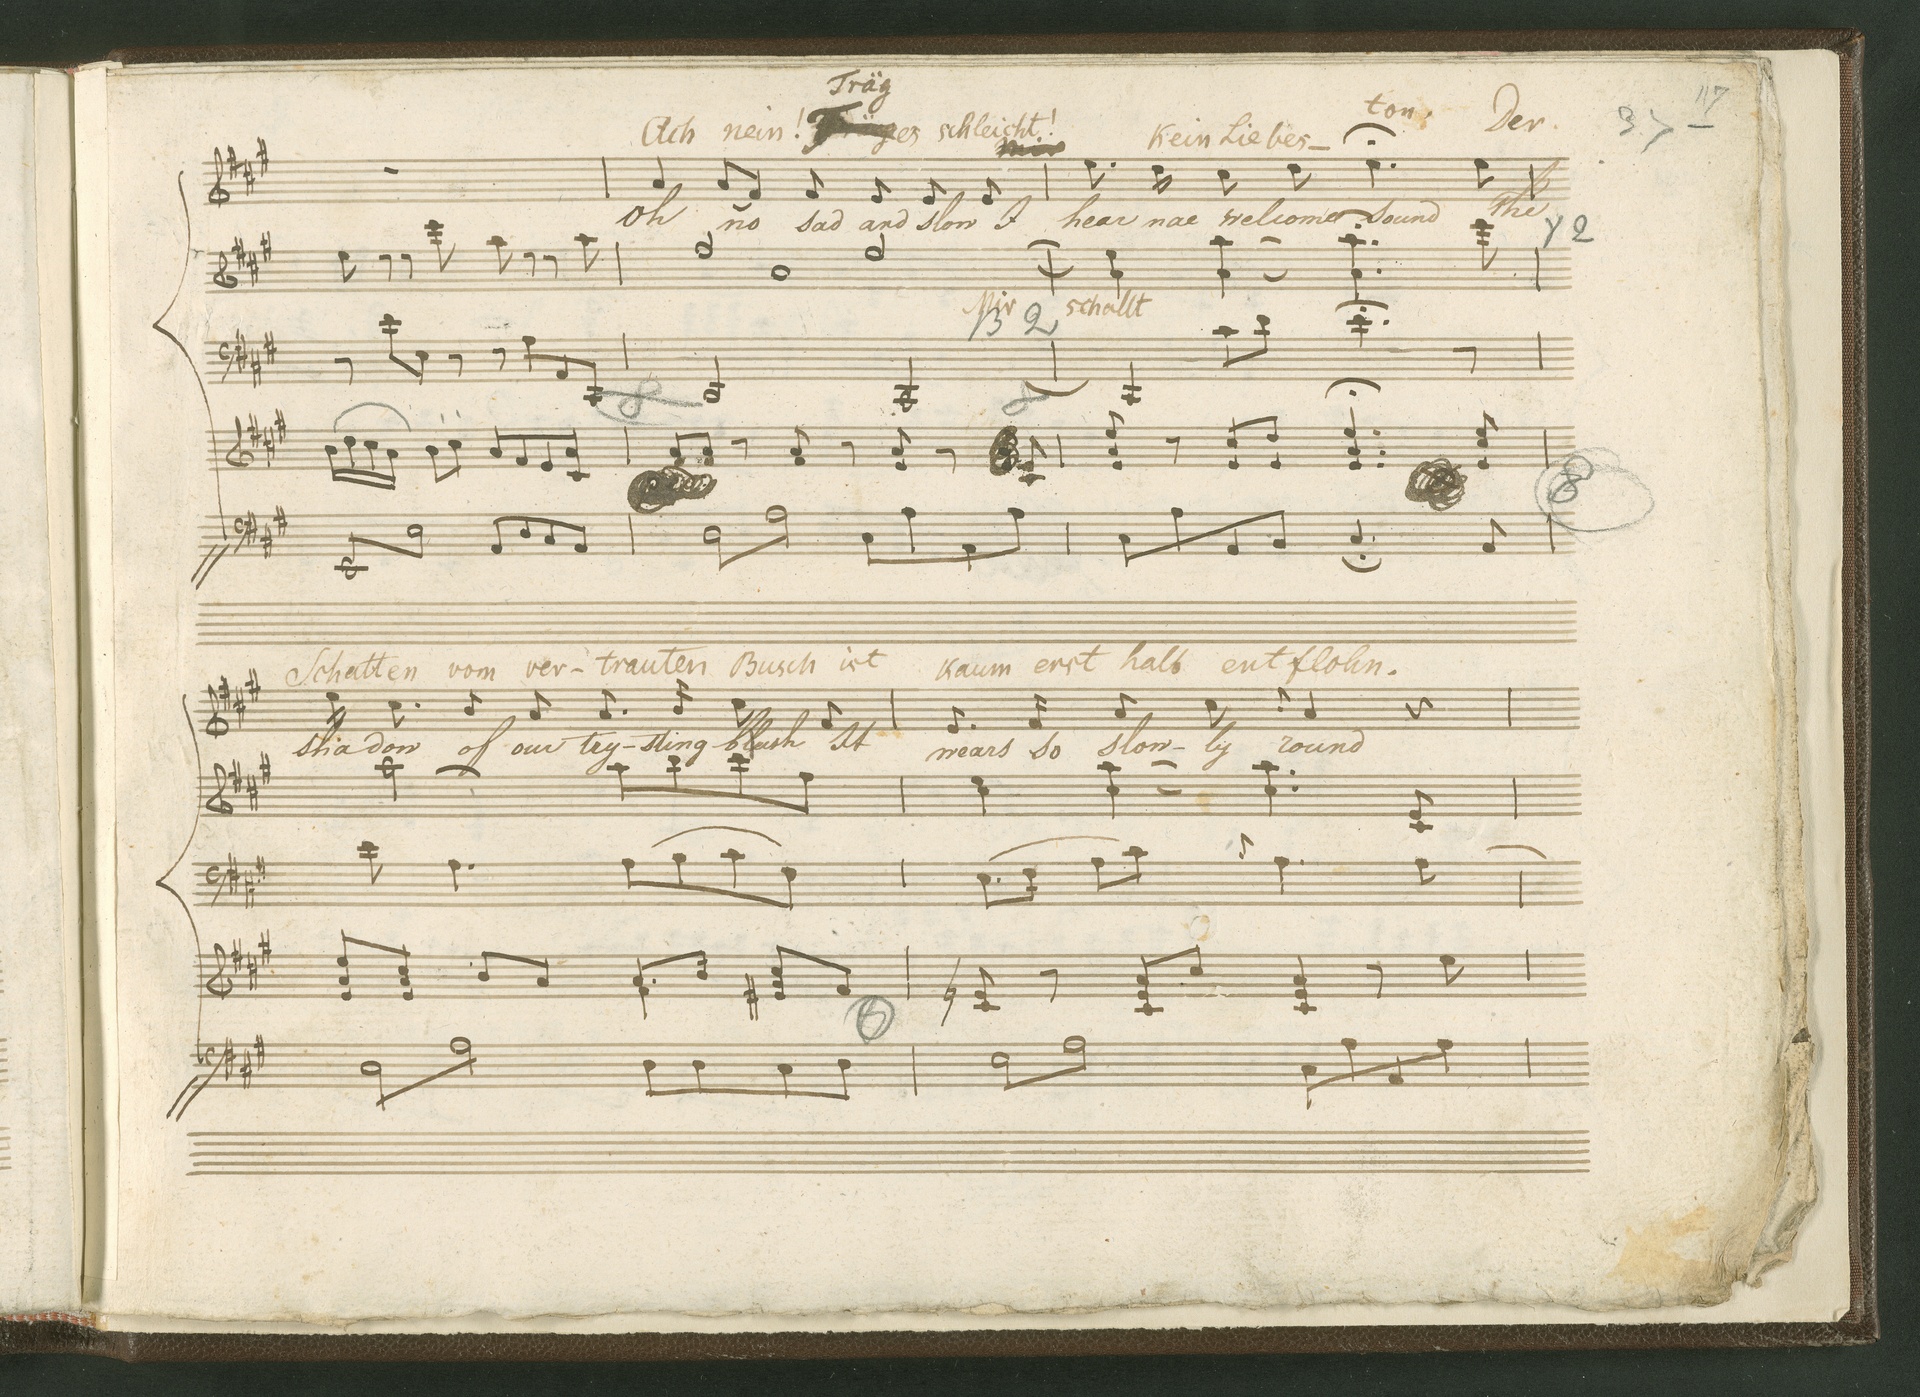 Träg
Ach nein! es schleicht! Kein Liebes- ton, Der
117
37
oh no sad and slow I hear nae welcome sound The
γ 2
Mir schallt
β 2
8 8
8
Schatten vom ver- trauten Busch ist kaum erst halb entflohn.
shadow of our try-sting bush It wears so slow-ly round